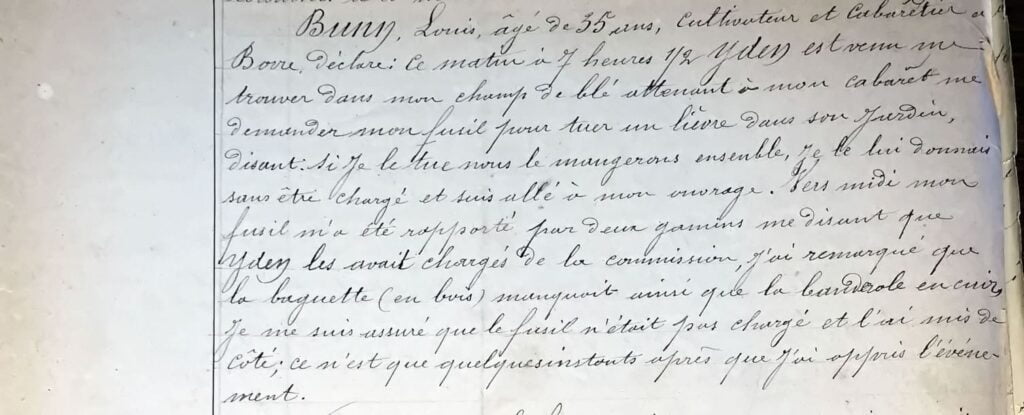 Buny, Louis, âgé de 35 ans, cultivateur et cabaretier à
Borre, déclare: Ce matin à 7 heures 1/2 Yden est venu me
trouver dans mon champ de blé attenant à mon cabaret me
demander mon fusil pour tuer un lièvre dans son Jardin,
disant: Si Je le tue nous le mangerons ensemble, Je le lui donnais
sans être chargé et suis allé à mon ouvrage. Vers midi mon
fusil m'a été rapporté par deux gamins me disant que
Yden les avait chargés de la commission, J'ai remarqué que
la baguette (en bois) manquait ainsi que la banderole en cuir,
Je me suis assuré que le fusil n'était pas chargé et l'ai mis de
côté; ce n'est que quelques instants après que J'ai appris l'événe-
ment.